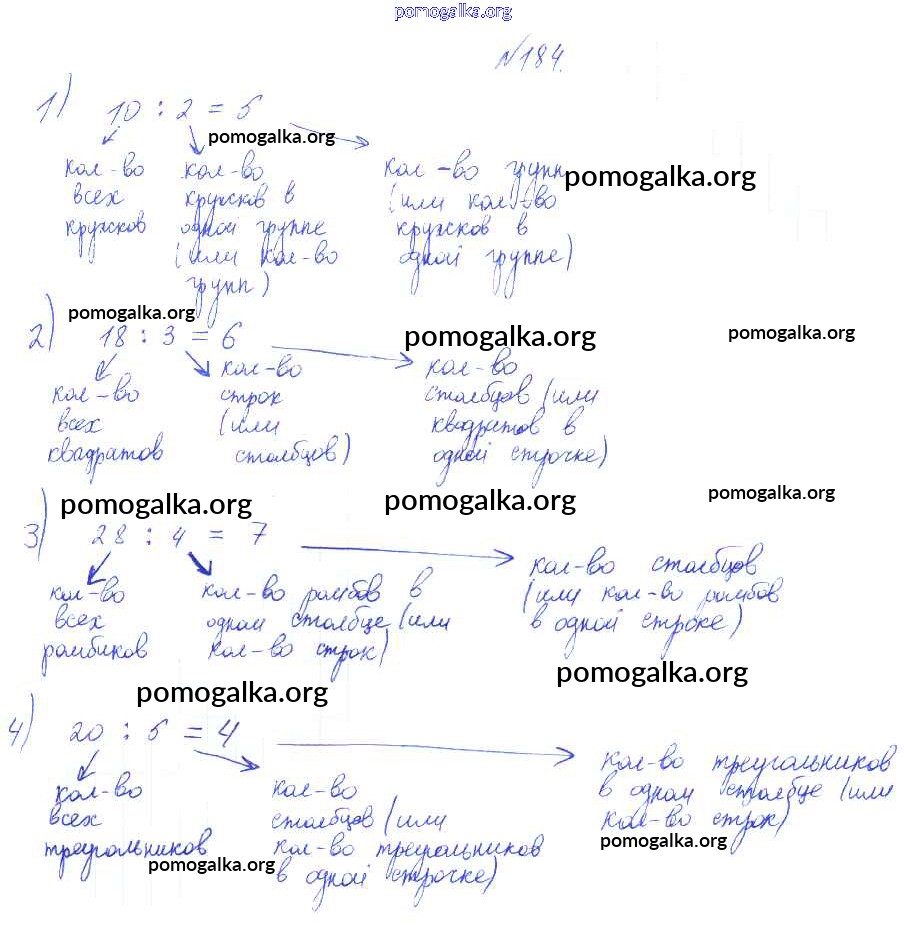 pomogalka.org
№184.
1) 10 : 2 = 5
pomogalka.org
кол-во кол-во кол-во групп
pomogalka.org
всех кружков в (или кол-во
кружков одной группе кружков в
(или кол-во одной группе)
групп)
pomogalka.org
2) 18 : 3 = 6
pomogalka.org
pomogalka.org
кол-во кол-во
кол-во строк столбцов (или
всех (или квадратов в
квадратов столбцов) одной строчке)
pomogalka.org
pomogalka.org
pomogalka.org
3) 28 : 4 = 7
кол-во столбцов
кол-во кол-во ромбов в (или кол-во ромбов
всех одном столбце (или в одной строке)
ромбиков кол-во строк)
pomogalka.org
pomogalka.org
4) 20 : 5 = 4
кол-во треугольников
кол-во кол-во в одном столбце (или
всех столбцов (или кол-во строк)
pomogalka.org
треугольников кол-во треугольников
pomogalka.org
в одной строчке)